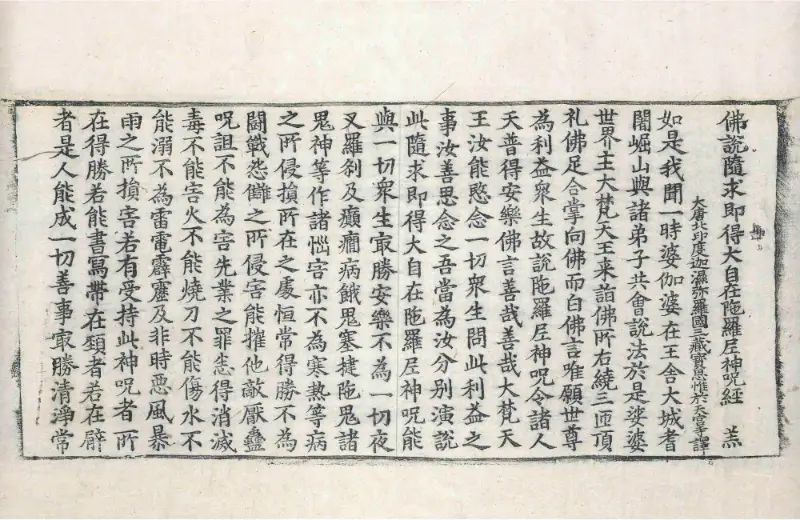 佛說隨求即得大自在陁羅尼神呪經　羔
大唐北印度迦濕弥羅國三藏寶思惟於天宮寺譯
如是我聞一時婆伽婆在王舍大城耆
闍崛山與諸弟子共會說法於是娑婆
世界主大梵天王来詣佛所右繞三匝頂
礼佛足合掌向佛而白佛言唯願世尊
為利益衆生故說陁羅尼神呪令諸人
天普得安樂佛言善哉善哉大梵天
王汝能愍念一切衆生問此利益之
事汝善思念之吾當為汝分别演說
此隨求即得大自在陁羅尼神呪能
與一切衆生㝡勝安樂不為一切夜
叉羅剎及癲癎病餓鬼塞揵陁鬼諸
鬼神等作諸惱害亦不為寒熱等病
之所侵損所在之處恒常得勝不為
鬪戰怨讎之所侵害能摧他敵厭蠱
呪詛不能為害先業之罪悉得消滅
毒不能害火不能燒刀不能傷水不
能溺不為雷電霹靂及非時惡風暴
雨之所損害若有受持此神呪者所
在得勝若能書寫帶在頸者若在臂
者是人能成一切善事㝡勝清淨常